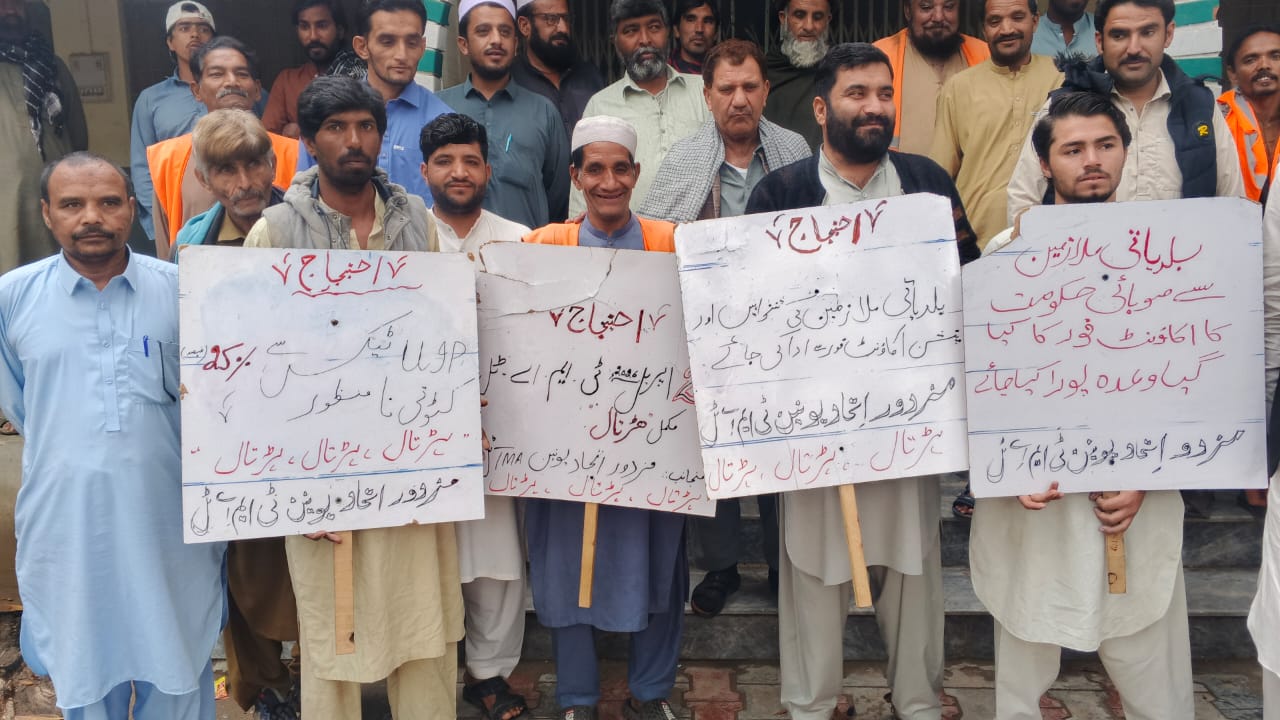 احتجاج
UIP ٹیکس سے
کٹوتی نا منظور
"ہڑتال، ہڑتال، ہڑتال"
مزدور اتحاد یونین ٹی ایم اے ٹل
احتجاج
اپریل ٹی ایم اے ٹل
مکمل "ہڑتال"
منجانب: مزدور اتحاد یونین TMA ٹل
ہڑتال، ہڑتال، ہڑتال
احتجاج
بلدیاتی ملازمین کی تنخواہیں اور
پنشن اکاؤنٹ ادا کی جائے
مزدور اتحاد یونین ٹی ایم اے ٹل
ہڑتال، ہڑتال، ہڑتال
بلدیاتی ملازمین
سے صوبائی حکومت
کا اکاونٹ فور کا کیا
گیا وعدہ پورا کیا جائے
مزدور اتحاد یونین ٹی ایم اے ٹل